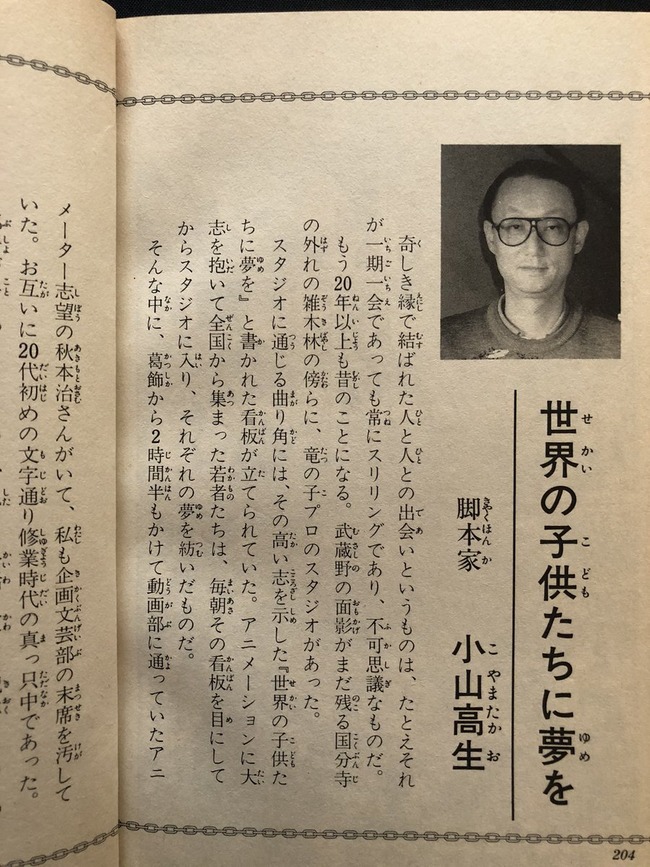 世界の子供たちに夢を
脚本家　小山高生
奇しき縁で結ばれた人と人との出会いというものは、たとえそれ
が一期一会であっても常にスリリングであり、不可思議なものだ。
もう20年以上も昔のことになる。武蔵野の面影がまだ残る国分寺
の外れの雑木林の傍らに、竜の子プロのスタジオがあった。
スタジオに通じる曲り角には、その高い志を示した『世界の子供た
ちに夢を』と書かれた看板が立てられていた。アニメーションに大
志を抱いて全国から集まった若者たちは、毎朝その看板を目にして
からスタジオに入り、それぞれの夢を紡いだものだ。
そんな中に、葛飾から2時間半もかけて動画部に通っていたアニ
204
メーター志望の秋本治さんがいて、私も企画文芸部の末席を汚して
いた。お互いに20代初めの文字通り修業時代の真っ只中であった。